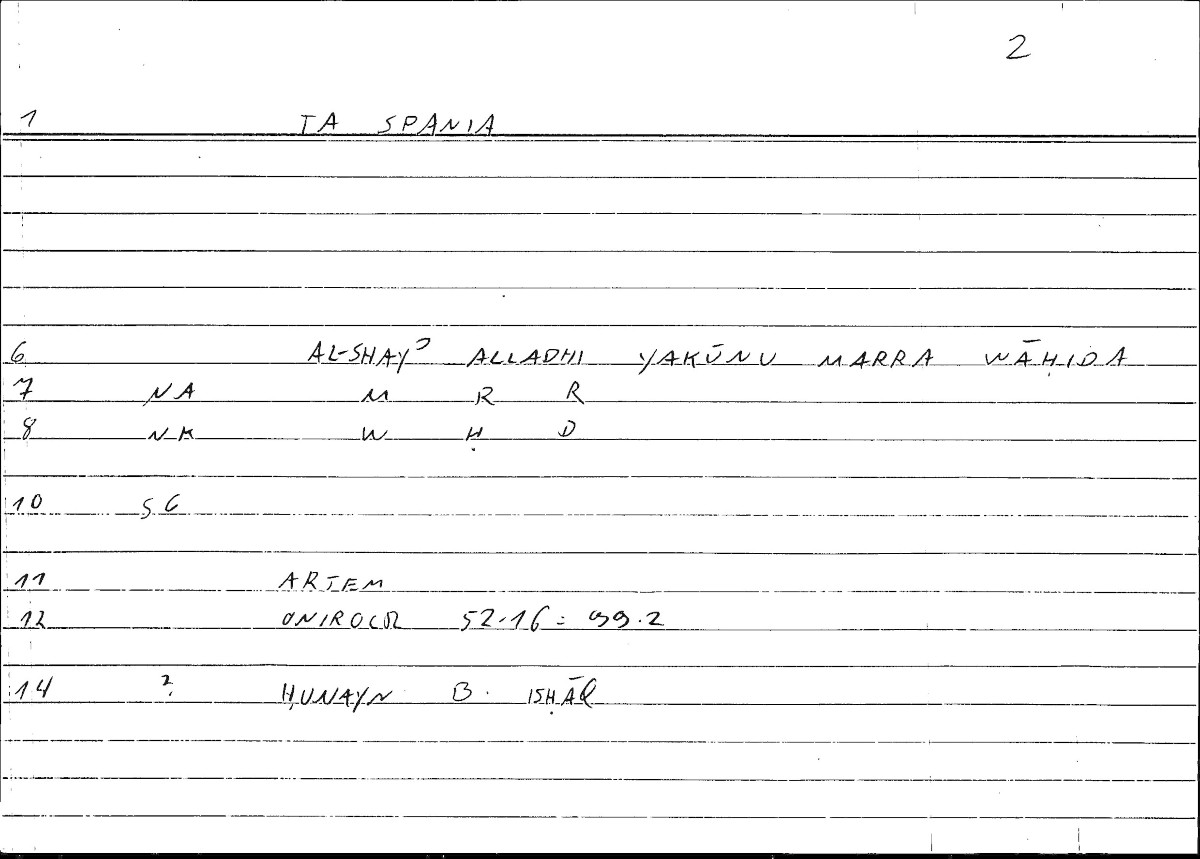 2
1 TA SPANIA
6 AL-SHAYʾ ALLADHI YAKŪNU MARRA WĀḤIDA
7 NA M R R
8 NK W Ḥ D
10 SG
11 ARTEM
12 ONIROCR 52.16 = 99.2
14 ? ḤUNAYN B. ISḤĀQ